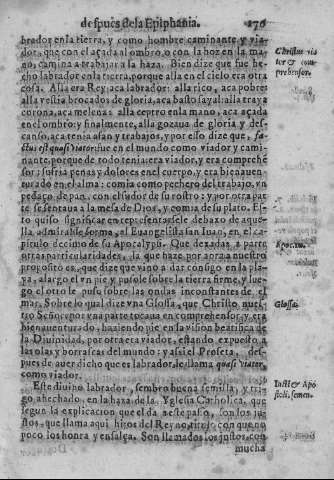 despues dela Epiphania. 276
brador en la tierra, y como hombre caminante y via-
dor, que con el açada al ombro, o con la hoz en la ma-
no, camina a trabajar a la haza. Bien dize que fue he-
cho labrador en la tierra, porque alla en el cielo era otra
cosa. Alla era Rey: aca labrador: alla rico, aca pobre:
alla vestia brocados de gloria, aca basto sayal: alla traya
corona, aca melena: alla centro en la mano, aca açada
en el ombro: y finalmente, alla gozaua de gloria y des-
canso, aca tenia afan y trabajos, y por esso dize que, fa-
ctus est quasi viator: fue en el mundo como viador y cami-
nante, porque de todo tenia: era viador, y era comprehe
sor: sufria penas y dolores en el cuerpo, y era bienauen-
turado en el alma: comia como pechero del trabajo, vn
pedaço de pan, con el sudor de su rostro: y por otra par-
te se sentaua a la mesa de Dios, y comia de su plato. Es-
to quiso significar en representarsele debaxo de aque-
lla admirable forma, el Euangelista san Iuan, en el ca-
pitulo decimo de su Apocalypsi. Que dexadas a parte
otras particularidades, la que haze por aora a nuestro
proposito es, que dize que vino a dar consigo en la pla-
ya, alargo el vn pie y pusole sobre la tierra firme, y lue-
go el otro le puso sobre las ondas inconstantes de el
mar. Sobre lo qual dize vna Glosa, que Christo nues-
tro Señor por vna parte tocaua en comprehensor, y era
bienauenturado, haziendo pie en la vision beatifica de
la Diuinidad, por otra era viador, estando expuesto a
las olas y borrascas del mundo: y assi el Profeta, des-
pues de auer dicho que es labrador, le llama quasi viator,
como viador.
Este diuino labrador, sembro buena semilla, y tri-
go ahechado, en la haza de la Yglesia Catholica, que
segun la explicacion que el da a este passo, son los jus-
tos, que llama aqui hijos del Reyno, trigo con que no
poco los honra y ensalça. Son llamados los justos, con
mucha
Christus via
tor & com
prehensor.
Apocal. 10.
Glossa.
Iusti & Apo
stoli, semen.